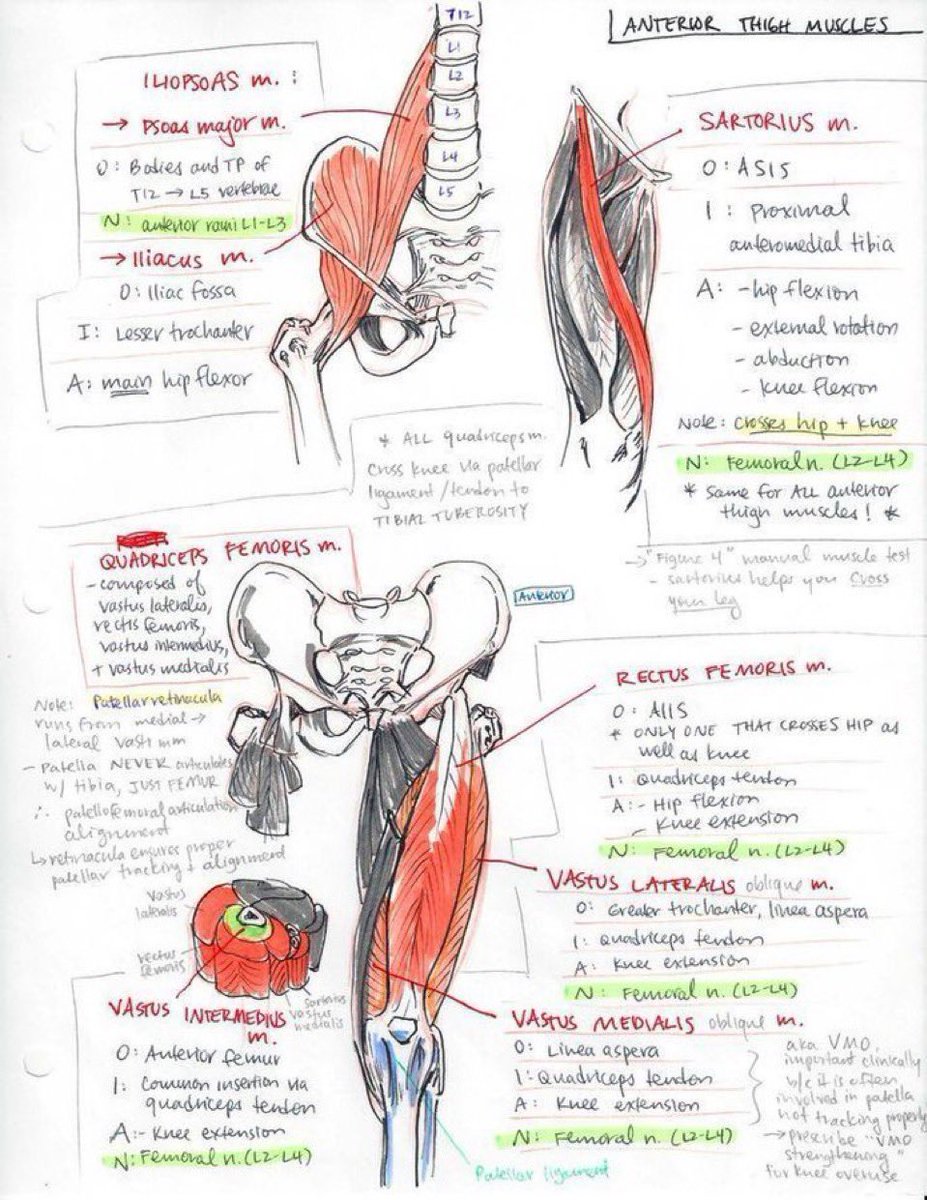 ANTERIOR THIGH MUSCLES
ILIOPSOAS m. :
→ Psoas major m.
O: Bodies and TP of
T12 → L5 vertebrae
N: anterior rami L1-L3
→ Iliacus m.
O: Iliac fossa
I: Lesser trochanter
A: main hip flexor
T12
L1
L2
L3
L4
L5
SARTORIUS m.
O: ASIS
I: Proximal
anteromedial tibia
A: -hip flexion
- external rotation
- abduction
- Knee flexion
Note: crosses hip + knee
N: Femoral n. (L2-L4)
* Same for ALL anterior
thigh muscles! *
→ "Figure 4" manual muscle test
- sartorius helps you cross
your leg
* ALL quadriceps m.
cross knee via patellar
ligament/tendon to
TIBIAL TUBEROSITY
QUADRICEPS FEMORIS m.
-composed of
vastus lateralis,
rectis femoris,
vastus intermedius,
+ vastus medialis
Anterior
Note: Patellar retinacula
runs from medial →
lateral vasti mm
- Patella NEVER articulates
w/ tibia, JUST FEMUR
∴ patellofemoral articulation
alignment
↳ retinacula ensures proper
patellar tracking + alignment
RECTUS FEMORIS m.
O: AIIS
* ONLY ONE THAT CROSSES HIP as
well as knee
I: Quadriceps tendon
A: - Hip flexion
- Knee extension
N: Femoral n. (L2-L4)
VASTUS LATERALIS oblique m.
O: Greater trochanter, linea aspera
I: Quadriceps tendon
A: Knee extension
N: Femoral n. (L2-L4)
vastus
lateralis
rectus
femoris
Sartorius
vastus
medialis
VASTUS INTERMEDIUS
m.
O: Anterior femur
I: Common insertion via
quadriceps tendon
A:- Knee extension
N: Femoral n. (L2-L4)
VASTUS MEDIALIS oblique m.
O: Linea aspera
I: Quadriceps tendon
A: Knee extension
N: Femoral n. (L2-L4)
aka VMO,
important clinically
b/c it is often
involved in patella
not tracking properly
→ prescribe "VMO
strengthening"
for knee overuse
Patellar ligament